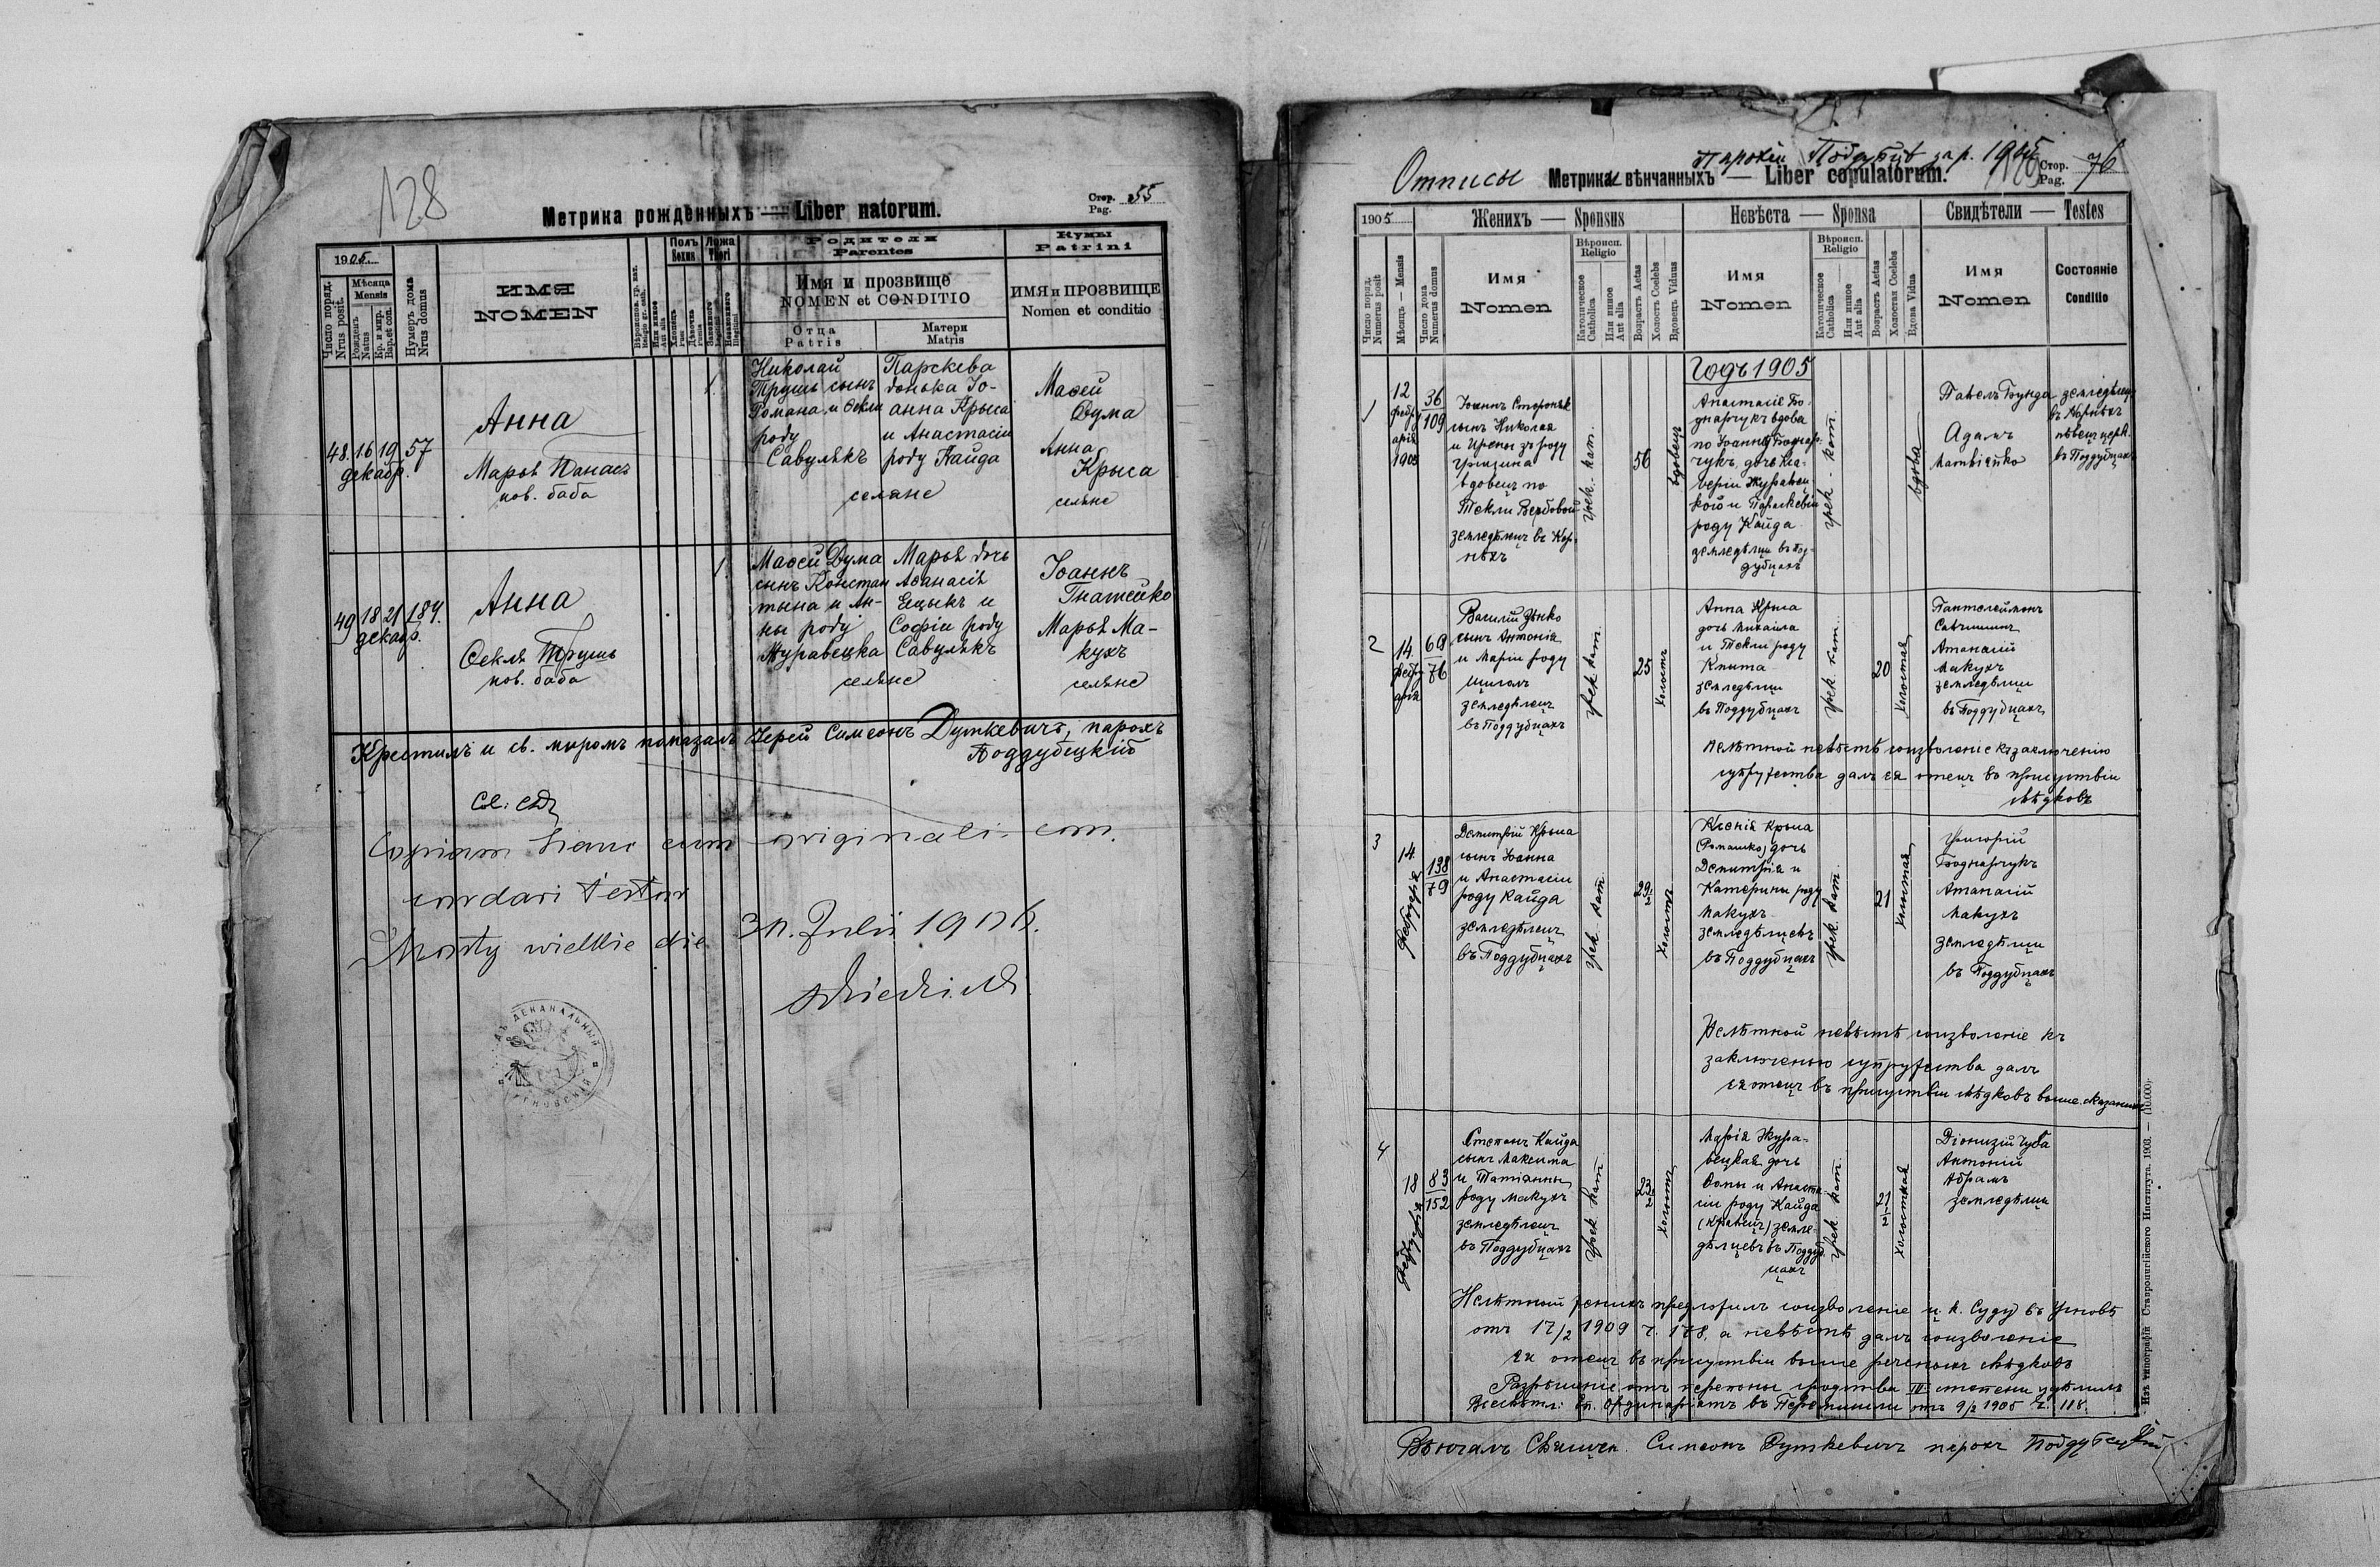 128
Метрика рожденныхъ — Liber natorum.
Стор. Pag. 55
1905
Число поряд. Nrus posit.
Мѣсяца Mensis
Рожденъ Natus
Кр. и мир. Bap. et con.
Нумеръ дома Nrus domus
ИМЯ
NOMEN
Или инное Aut alia
Полъ
Ложа Thori
Родители
Parentes
Имя и прозвище
NOMEN et CONDITIO
Отца
Patris
Матери
Matris
Кумы
Patrini
ИМЯ и ПРОЗВИЩЕ
Nomen et conditio
48. 16 19 57
декабр.
Анна
Марья Панасъ
пов. баба
1.
Николай
Трушъ сынъ
Романа и Ѳекли
роду
Савулякъ
Парскева
донька Іо-
анна Крыса
и Анастасіи
роду Кайда
селяне
Маѳей
Дума
Анна
Крыса
селяне
49 18 21 184.
декабр.
Анна
Ѳекля Трушъ
пов. баба
1.
Маѳей Дума
сынъ Констан
тына и Ан-
ны роду
Журавецка
Марья дочь
Аѳанасія
Ецыкъ и
Софіи роду
Савулякъ
селяне
Іоаннъ
Гнатейко
Марья Ма-
кухъ
селяне
Крестилъ и св. муромъ помазалъ Іерей Симеонъ Дуткевичъ, парохъ
Поддубецкій
Copiam hanc cum originali con
cordari testor
Mosty wielkie die 31. Julii 1906.
Отписы Метрики вѣнчанныхъ — Liber copulatorum.
Парохіи Поддубцѣ за р. 1905
Стор. Pag. 76
1905
Женихъ — Sponsus
Невѣста — Sponsa
Свидѣтели — Testes
Число поряд. Numerus posit
Мѣсяцъ — Mensis
Число дома Numerus domus
Имя
Nomen
Вѣроисп. Religio
Католическое Catholica
Или инное Aut alia
Возрастъ Aetas
Холостъ Coelebs
Вдовецъ Viduus
Имя
Nomen
Вѣроисп. Religio
Католическое Catholica
Или инное Aut alia
Возрастъ Aetas
Холостая Coelebs
Вдова Vidua
Имя
Nomen
Состояніе
Conditio
Годъ 1905
1
12
фебру
арія
1905
36
109
сынъ Николая
и Ирены зъ роду
вдовецъ по
Текли Вербовой
греч. кат.
56
вдовецъ
Анастасія Бо-
днарчукъ вдова
по Іоаннѣ Боднар-
чукъ, дочь
Журавец
кого и Параскевіи
роду Кайда
земледѣлци въ Под-
дубцахъ
греч. кат.
вдова
Павелъ Бунда
Адамъ
Матвіейко
пѣвецъ церк.
въ Поддубцахъ
2
14
фебру
арія
69
76
Василій Дѣнко
сынъ Антонія
и Маріи роду
Щиголъ
земледѣлецъ
въ Поддубцахъ
греч. кат.
25
холостъ
Анна Крыса
дочь Михаила
и Текли роду
земледѣлци
въ Поддубцахъ
греч. кат.
20
холостая
Пантелеймонъ
Атанасій
Макухъ
земледѣлци
въ Поддубцахъ
Нелѣтной невѣстѣ соизволеніе къ заключенію
супружества далъ ея отецъ въ присутствіи
свѣдковъ
3
14
фебруарія
138
79
Димитрій Крыса
сынъ Іоанна
и Анастасіи
роду Кайда
земледѣлецъ
въ Поддубцахъ
греч. кат.
29
холостъ
Ксенія Крыса
(Ромашко) дочь
Димитрія и
Катерины роду
Макухъ
земледѣлцевъ
въ Поддубцахъ
греч. кат.
21
холостая
Григорій
Боднарчукъ
Атанасій
Макухъ
земледѣлци
въ Поддубцахъ
Нелѣтной невѣстѣ соизволеніе къ
заключенью супружества далъ
ея отецъ въ присутствіи свѣдковъ выше сказанныхъ
4
18
фебруарія
83
152
Степанъ Кайда
сынъ Максима
и Татіянны
роду Макухъ
земледѣлецъ
въ Поддубцахъ
греч. кат.
23
холостъ
Марія Жура-
вецкая дочь
Ѳомы и Анаста-
сіи роду Кайда
(Кравец) земле-
дѣлцевъ въ Поддуб
цахъ
греч. кат.
21
холостая
Діонизій Чуба
Антоній
Абрамъ
земледѣлци
Нелѣтный женихъ предложилъ соизволеніе ц. к. Суду въ Угновѣ
отъ 17/2 1909 ч. 178, а невѣстѣ далъ соизволеніе
ея отецъ въ присутствіи выше реченныхъ свѣдковъ
Разрѣшеніе отъ перепоны сродства IV степени удѣлилъ
Всесвѣтл. Еп. Ординаріятъ въ Перемышли отъ 9/2 1905 ч. 118.
Вѣнчалъ Священ. Симеонъ Дуткевичъ парохъ Поддубецкій
Изъ типографіи Ставропигійского Института. 1903. — (10.000).